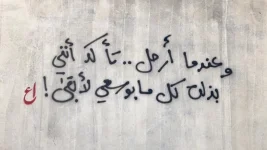 وعندما أرحل .. تأكد أنني
بذلت كل مابوسعي لأبقى !
اع